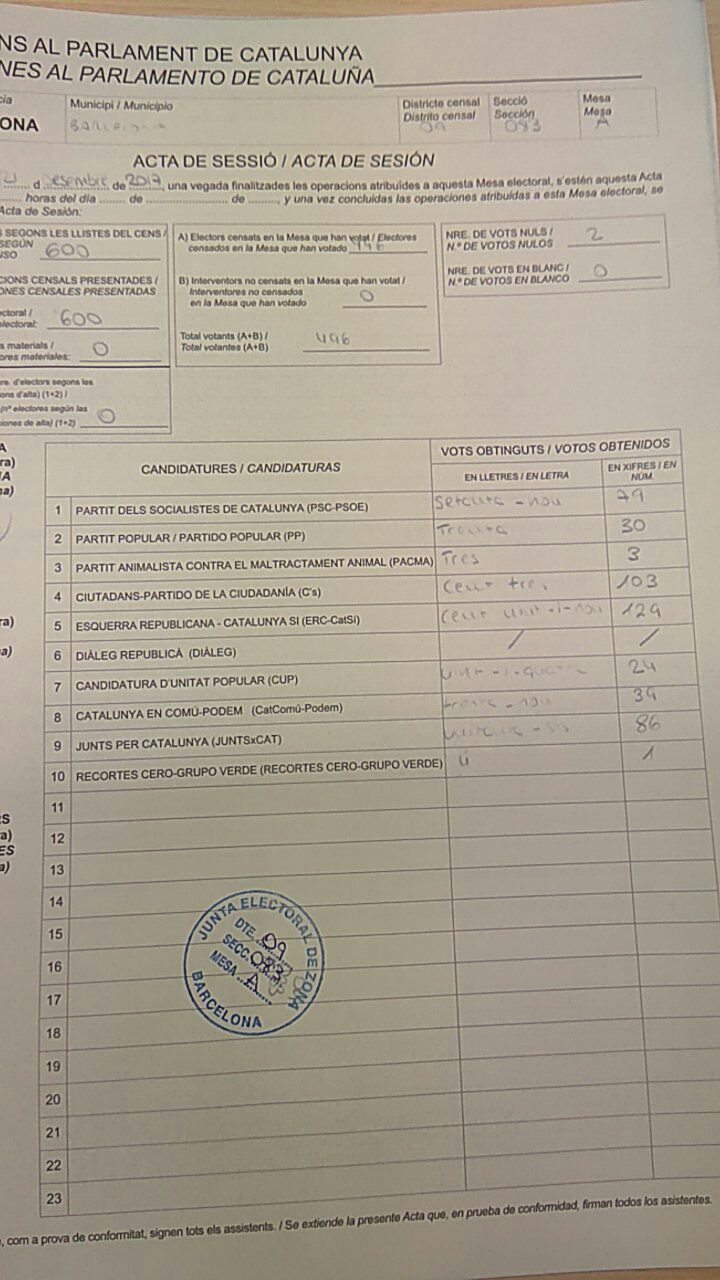 NS AL PARLAMENT DE CATALUNYA
NES AL PARLAMENTO DE CATALUÑA
cia
ONA
Municipi / Municipio
BARCELONA
Districte censal
Distrito censal
09
Secció
Sección
083
Mesa
Mesa
A
ACTA DE SESSIÓ / ACTA DE SESIÓN
d desembre de 2017, una vegada finalitzades les operacions atribuïdes a aquesta Mesa electoral, s'estén aquesta Acta
horas del día ........ de ........ de ........, y una vez concluidas las operaciones atribuidas a esta Mesa electoral, se
Acta de Sesión:
SEGONS LES LLISTES DEL CENS /
SEGÚN
NSO 600
CIONS CENSALS PRESENTADES /
ONES CENSALES PRESENTADAS
ectoral /
electoral: 600
s materials /
ores materiales: 0
re. d'electors segons les
ons d'alta) (1+2) /
(nº electores según las
iones de alta) (1+2) 0
A) Electors censats en la Mesa que han votat / Electores
censados en la Mesa que han votado 496
B) Interventors no censats en la Mesa que han votat /
Interventores no censados
en la Mesa que han votado 0
Total votants (A+B) /
Total votantes (A+B) 496
NRE. DE VOTS NULS /
N.º DE VOTOS NULOS 2
NRE. DE VOTS EN BLANC /
N.º DE VOTOS EN BLANCO 0
CANDIDATURES / CANDIDATURAS
VOTS OBTINGUTS / VOTOS OBTENIDOS
EN LLETRES / EN LETRA
EN XIFRES / EN
NÚM.
1 PARTIT DELS SOCIALISTES DE CATALUNYA (PSC-PSOE) Setanta-nou 79
2 PARTIT POPULAR / PARTIDO POPULAR (PP) Trenta 30
3 PARTIT ANIMALISTA CONTRA EL MALTRACTAMENT ANIMAL (PACMA) Tres 3
4 CIUTADANS-PARTIDO DE LA CIUDADANÍA (C's) Cent tres 103
5 ESQUERRA REPUBLICANA - CATALUNYA SI (ERC-CatSí) Cent vint-i-nou 129
6 DIÀLEG REPUBLICÀ (DIÀLEG) / /
7 CANDIDATURA D'UNITAT POPULAR (CUP) vint-i-quatre 24
8 CATALUNYA EN COMÚ-PODEM (CatComú-Podem) trenta-nou 39
9 JUNTS PER CATALUNYA (JUNTSxCAT) vuitanta-sis 86
10 RECORTES CERO-GRUPO VERDE (RECORTES CERO-GRUPO VERDE) ú 1
11
12
13
14
15
16
17
18
19
20
21
22
23
JUNTA ELECTORAL DE ZONA
DTE. 09
SECC. 083
MESA A
BARCELONA
A
ra)
A
na)
ra)
a)
S
a)
ES
a)
, com a prova de conformitat, signen tots els assistents. / Se extiende la presente Acta que, en prueba de conformidad, firman todos los asistentes.